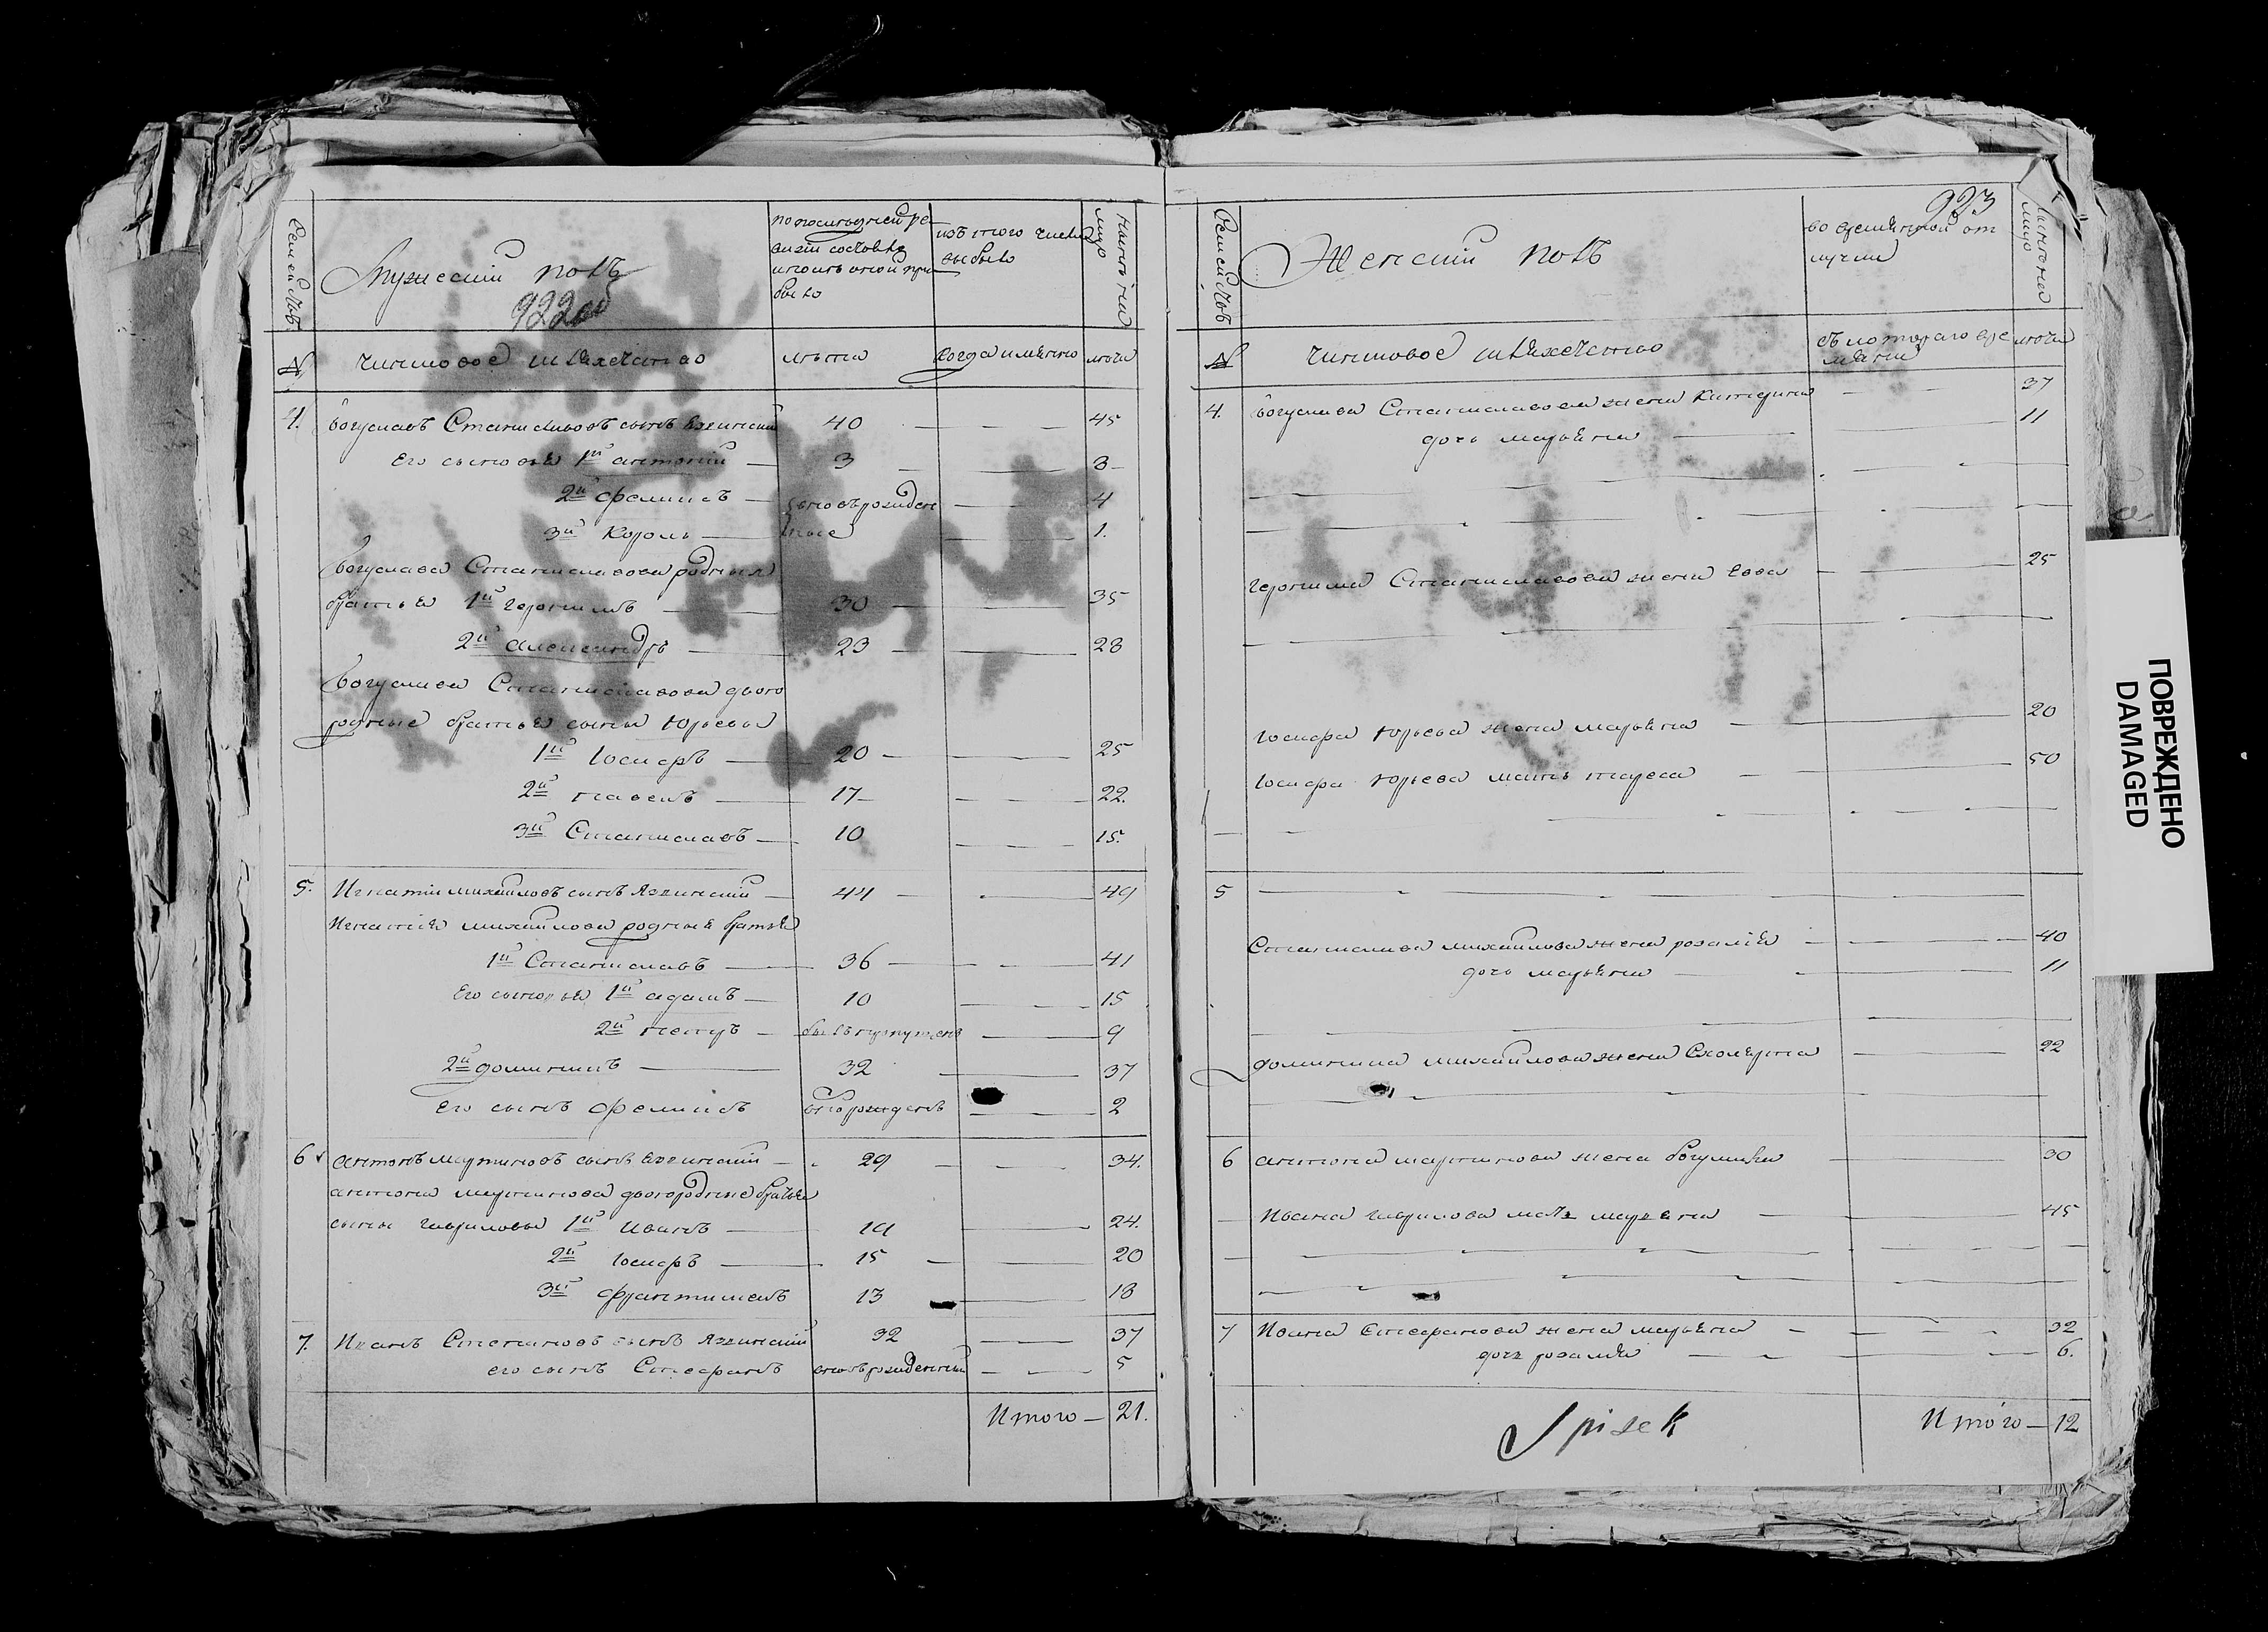 Семействъ
Мужескій полъ
922 об
по последней ре-
визіи состояло
и послѣ оной при-
было
изъ того числа
выбыло
нынѣ на
лицо
№
чиншовое шляхетство
лѣта
когда имянно
лѣта
4. Богуславъ Станиславовъ сынъ Язвинскій 40 45
Его сыновья 1й антоній 3 8
2й феликсъ 4
вновьрожден
3й Кароль ные 1.
Богуслава Станиславова родныя
братья 1й геронимъ 30 35
2й александръ 23 28
Богуслава Станиславова двою
родные братья сыны Юрьевы
1й Іосифъ 20 25
2й павелъ 17 22.
3й Станиславъ 10 15.
5. Игнатій михайловъ сынъ Язвинскій 44 49
Игнатія михайлова родныя братья
1й Станиславъ 36 41
Его сыновья 1й адамъ 10 15
2й петръ былъ пропущенъ 9
2й доминикъ 32 37
Его сынъ феликсъ вноворожденъ 2
6 антонъ мартиновъ сынъ Язвинскій 29 34.
антона мартинова двоюродные братья
сыны гавриловы 1й Иванъ 19 24.
2й Іосифъ 15 20
3й францишекъ 13 18
7. Иванъ Стефановъ сынъ Язвинскій 32 37
его сынъ Стефанъ вновьрожденный 5
Итого 21.
923
Семействъ
Женскій полъ
во временной от
лучки
№
чиншовое шляхетство
съ котораго вре
мяни
лѣта
4. Богуслава Станиславова жена Катерина 37
дочь марьяна 11
геронима Станиславова жена Евва 25
Іосифа Юрьева жена марьяна 20
Іосифа Юрьева мать тереса 50
5
Станислава михайлова жена розалія 40
дочь марьяна 11
доминика михайлова жена Схолярта 22
6 антона мартинова жена богумила 30
Ивана гаврилова мать марьяна 45
7 Ивана Стефанова жена марьяна 32
дочь розалія 6.
Итого 12
Spisek
ПОВРЕЖДЕНО
DAMAGED